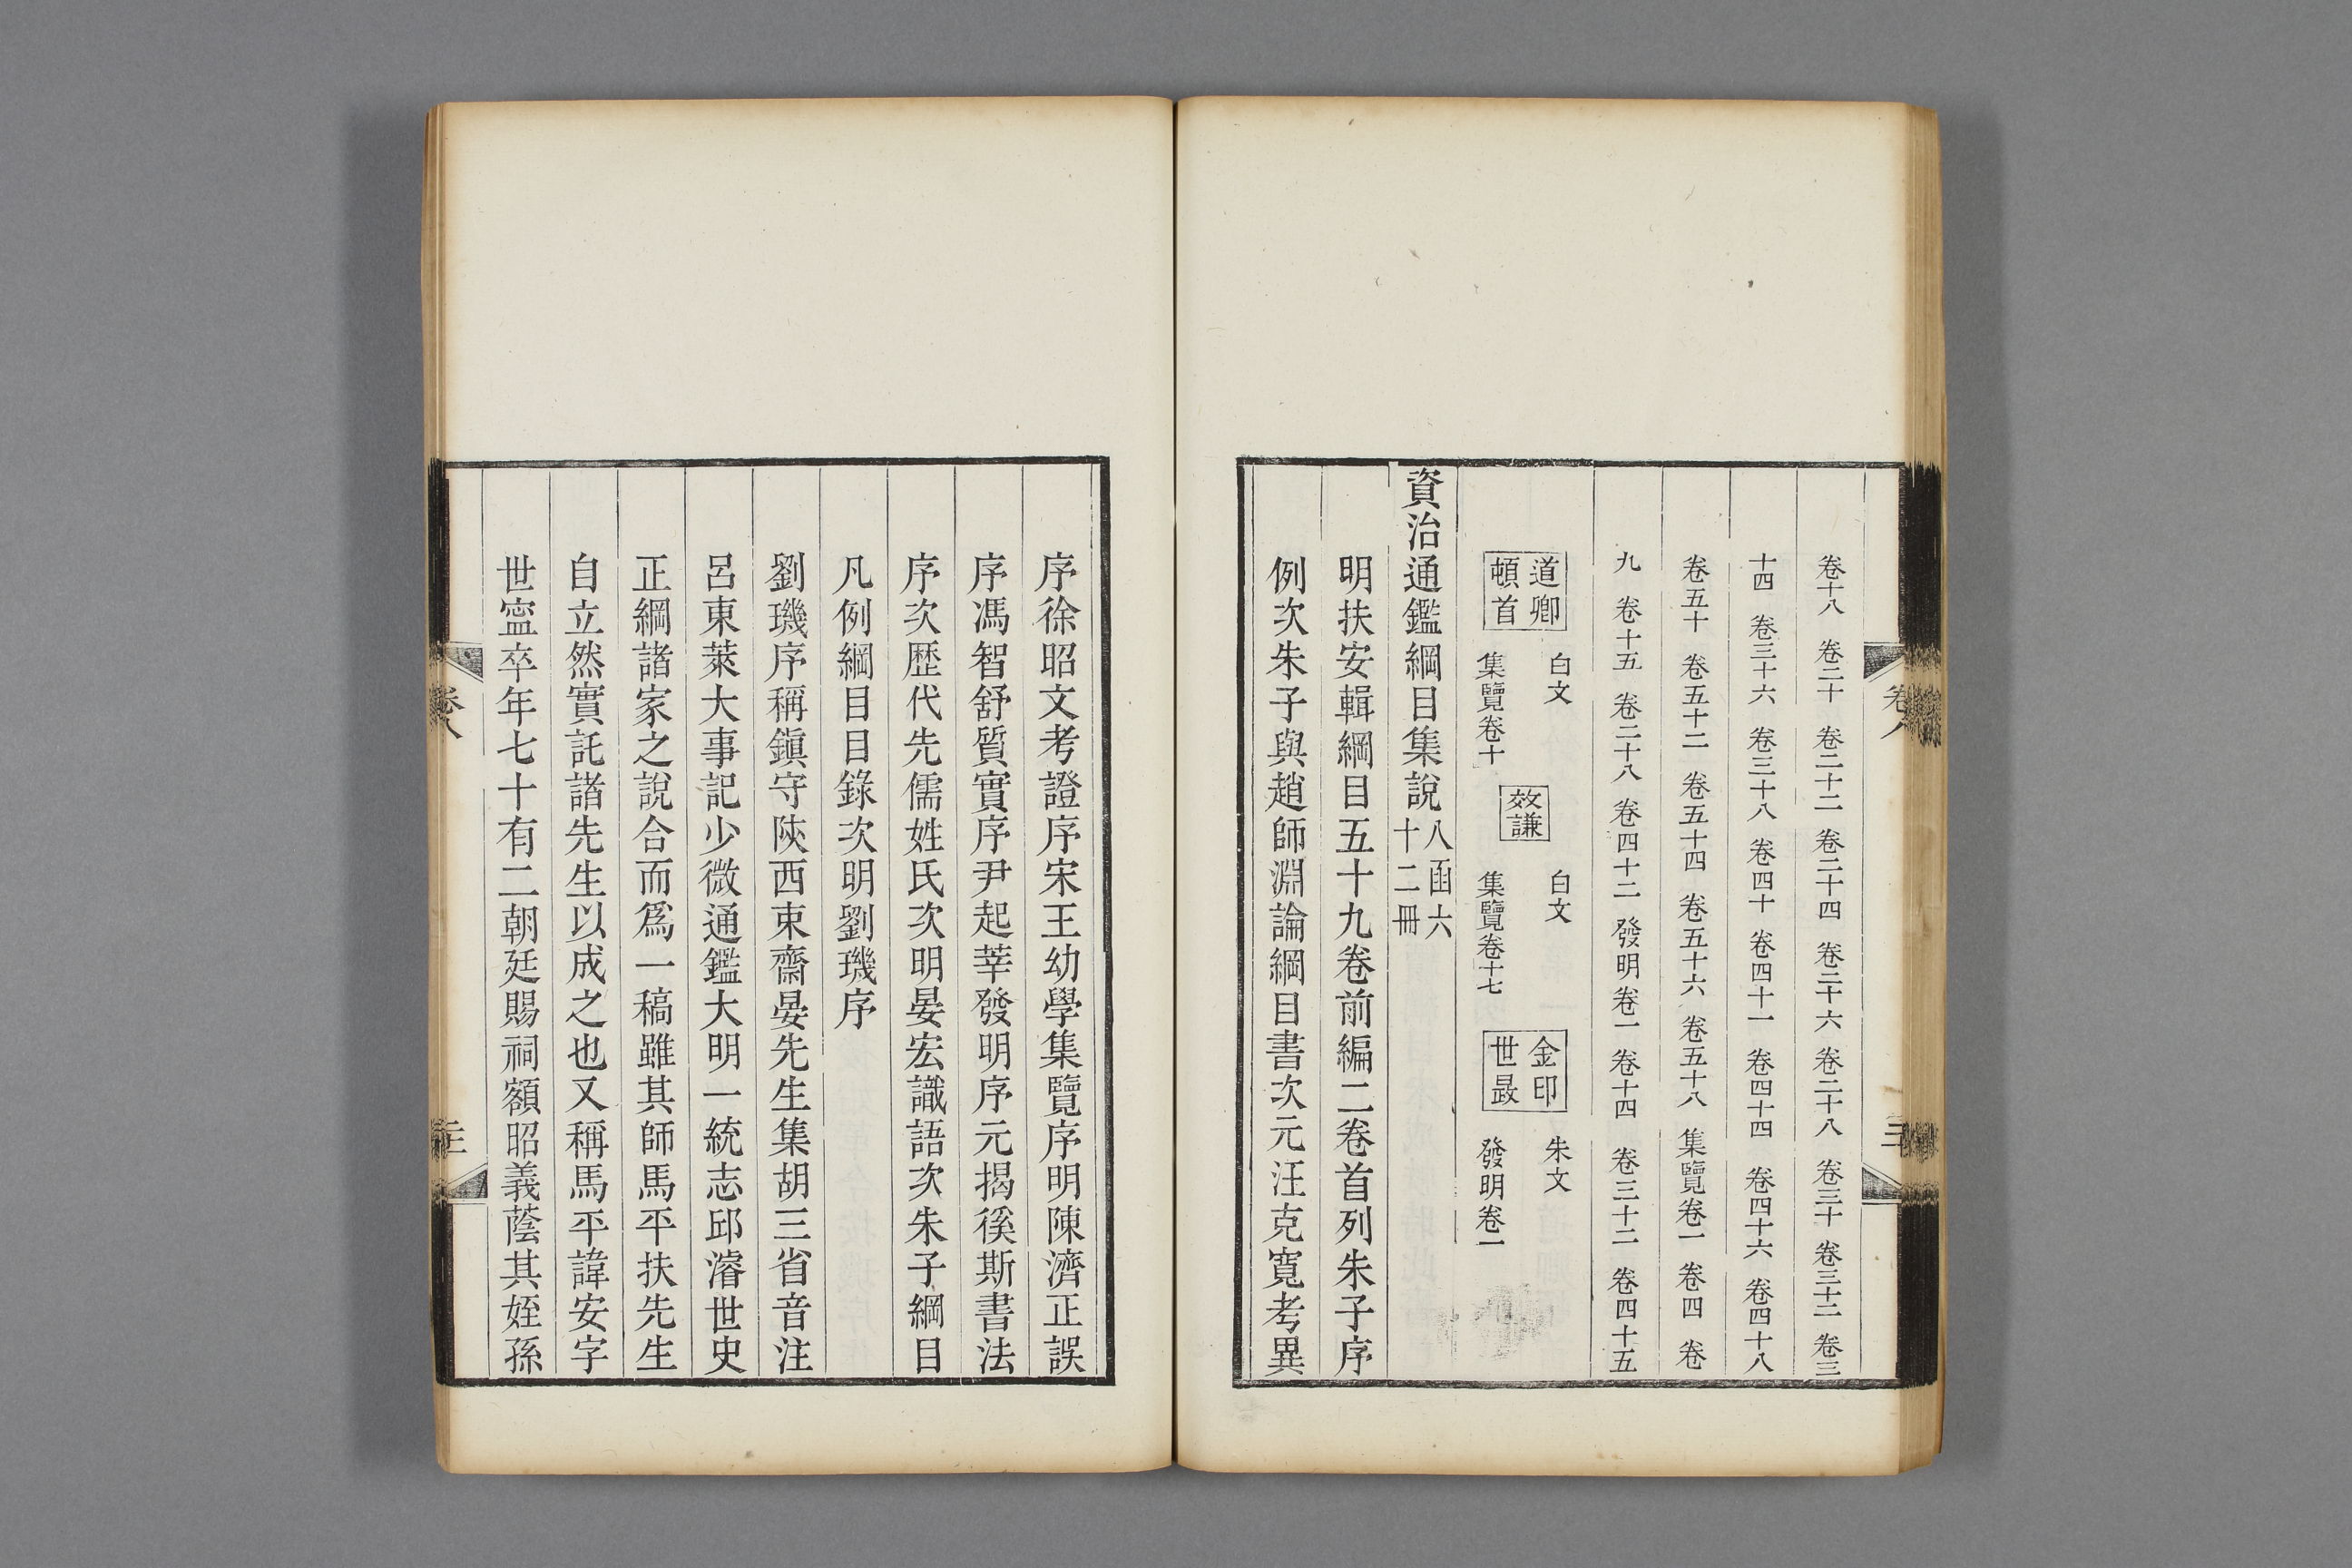 卷十八 卷二十 卷二十二 卷二十四 卷二十六 卷二十八 卷三十 卷三十二 卷三
十四 卷三十六 卷三十八 卷四十 卷四十一 卷四十四 卷四十六 卷四十八
卷五十 卷五十二 卷五十四 卷五十六 卷五十八 集覽卷一 卷四 卷
九 卷十五 卷二十八 卷四十二 發明卷一 卷十四 卷三十二 卷四十五
道卿
頓首
白文
集覽卷十
效謙
白文
集覽卷十七
金印
世㝡
朱文
發明卷一
資治通鑑綱目集說
八函六
十二冊
明扶安輯綱目五十九卷前編二卷首列朱子序
例次朱子與趙師淵論綱目書次元汪克寬考異
序徐昭文考證序宋王幼學集覽序明陳濟正誤
序馮智舒質實序尹起莘發明序元揭徯斯書法
序次歷代先儒姓氏次明晏宏識語次朱子綱目
凡例綱目目錄次明劉璣序
劉璣序稱鎮守陝西東齋晏先生集胡三省音注
呂東萊大事記少微通鑑大明一統志邱濬世史
正綱諸家之說合而爲一稿雖其師馬平扶先生
自立然實託諸先生以成之也又稱馬平諱安字
世寍卒年七十有二朝廷賜祠額昭義蔭其姪孫
卷八
卷八